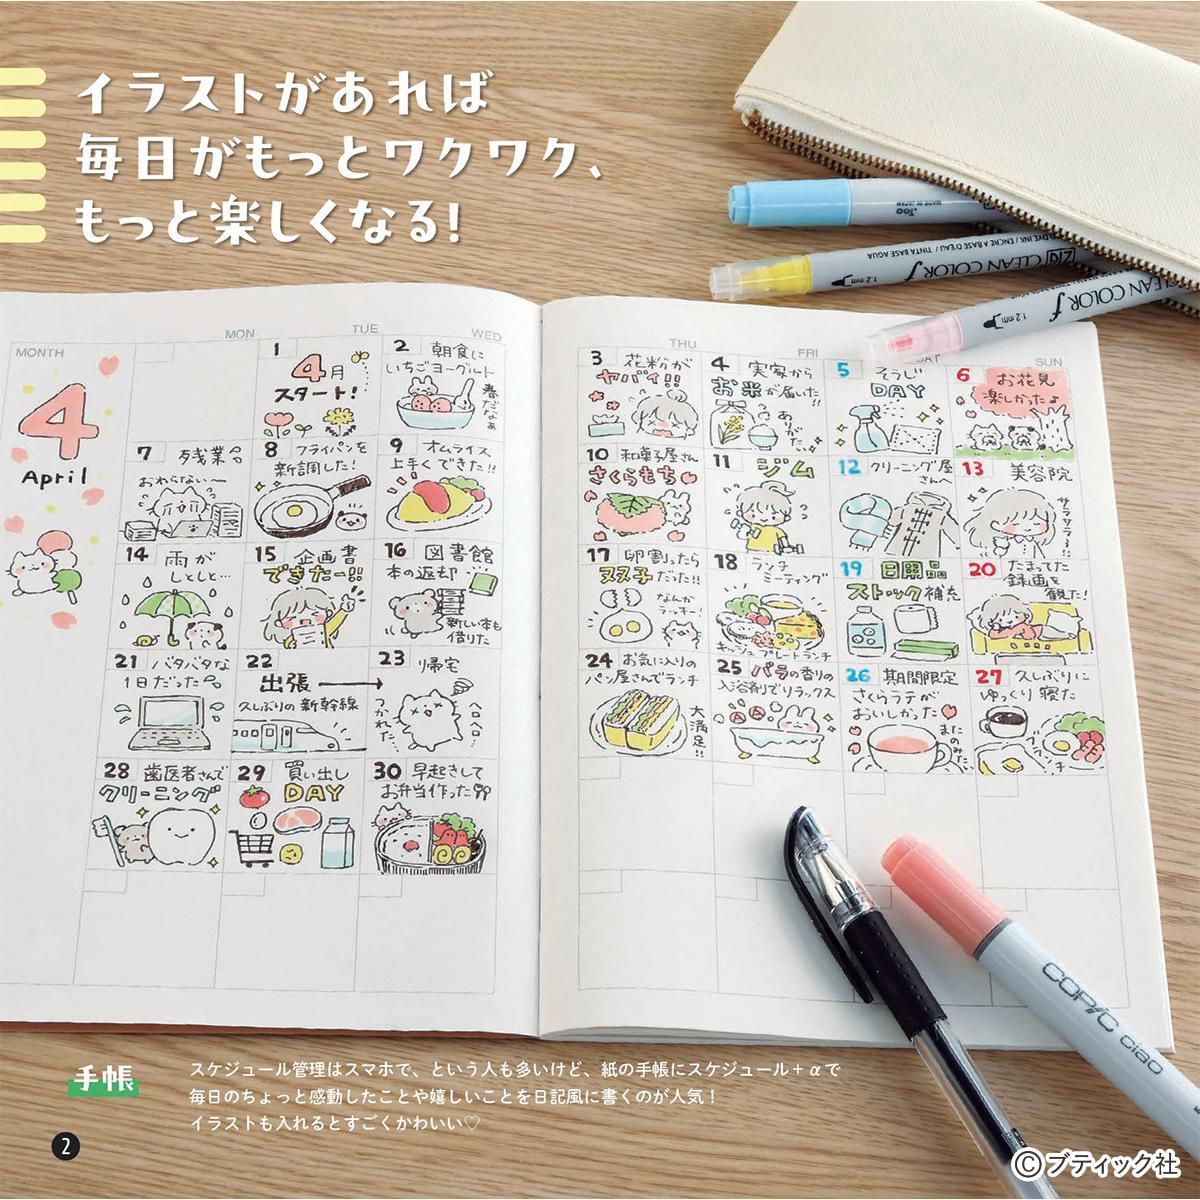 イラストがあれば
毎日がもっとワクワク、
もっと楽しくなる!
MONTH
MON
TUE
WED
4
April
1
4月
スタート!
2 朝食に
いちごヨーグルト
春だなぁ
7 残業
おわらない〜
8 フライパンを
新調した!
9 オムライス
上手くできた!!
14 雨が
しとしと…
15 企画書
できたー!!
16 図書館
本の返却
新しい本も
借りた
21 バタバタな
1日だった
22
出張
久しぶりの新幹線
23 帰宅
つかれた
ヘロヘロ
28 歯医者さんで
クリーニング
29 買い出し
DAY
30 早起きして
お弁当作った
THU
FRI
SAT
SUN
3 花粉が
ヤバイ!!
4 実家から
お米が届いた!!
ありがた
5 そうじ
DAY
6 お花見
楽しかった♪
10 和菓子屋さん
さくらもち
11 ジム
12 クリーニング屋
さんへ
13 美容院
サラサラ〜!!
17 卵割ったら
双子だった!!
なんか
ラッキー!
18 ランチ
ミーティング
キッシュプレートランチ
19 日用品
ストック補充
20 たまってた
録画を
観た!
24 お気に入りの
パン屋さんでランチ
大満足!!
25 バラの香りの
入浴剤でリラックス
26 期間限定
さくらラテが
おいしかった
またのみたい
27 久しぶりに
ゆっくり寝た
ブランチー
.Too
MADE IN JAPAN
DYE INK / ENCRE A BASE D'EAU / TINTA BASE AGUA
1.2mm
ZIG CLEAN COLOR f
1.2mm
CLEAN COLOR f
COPIC ciao
手帳
スケジュール管理はスマホで、という人も多いけど、紙の手帳にスケジュール+αで
毎日のちょっと感動したことや嬉しいことを日記風に書くのが人気!
イラストも入れるとすごくかわいい♡
2
©ブティック社